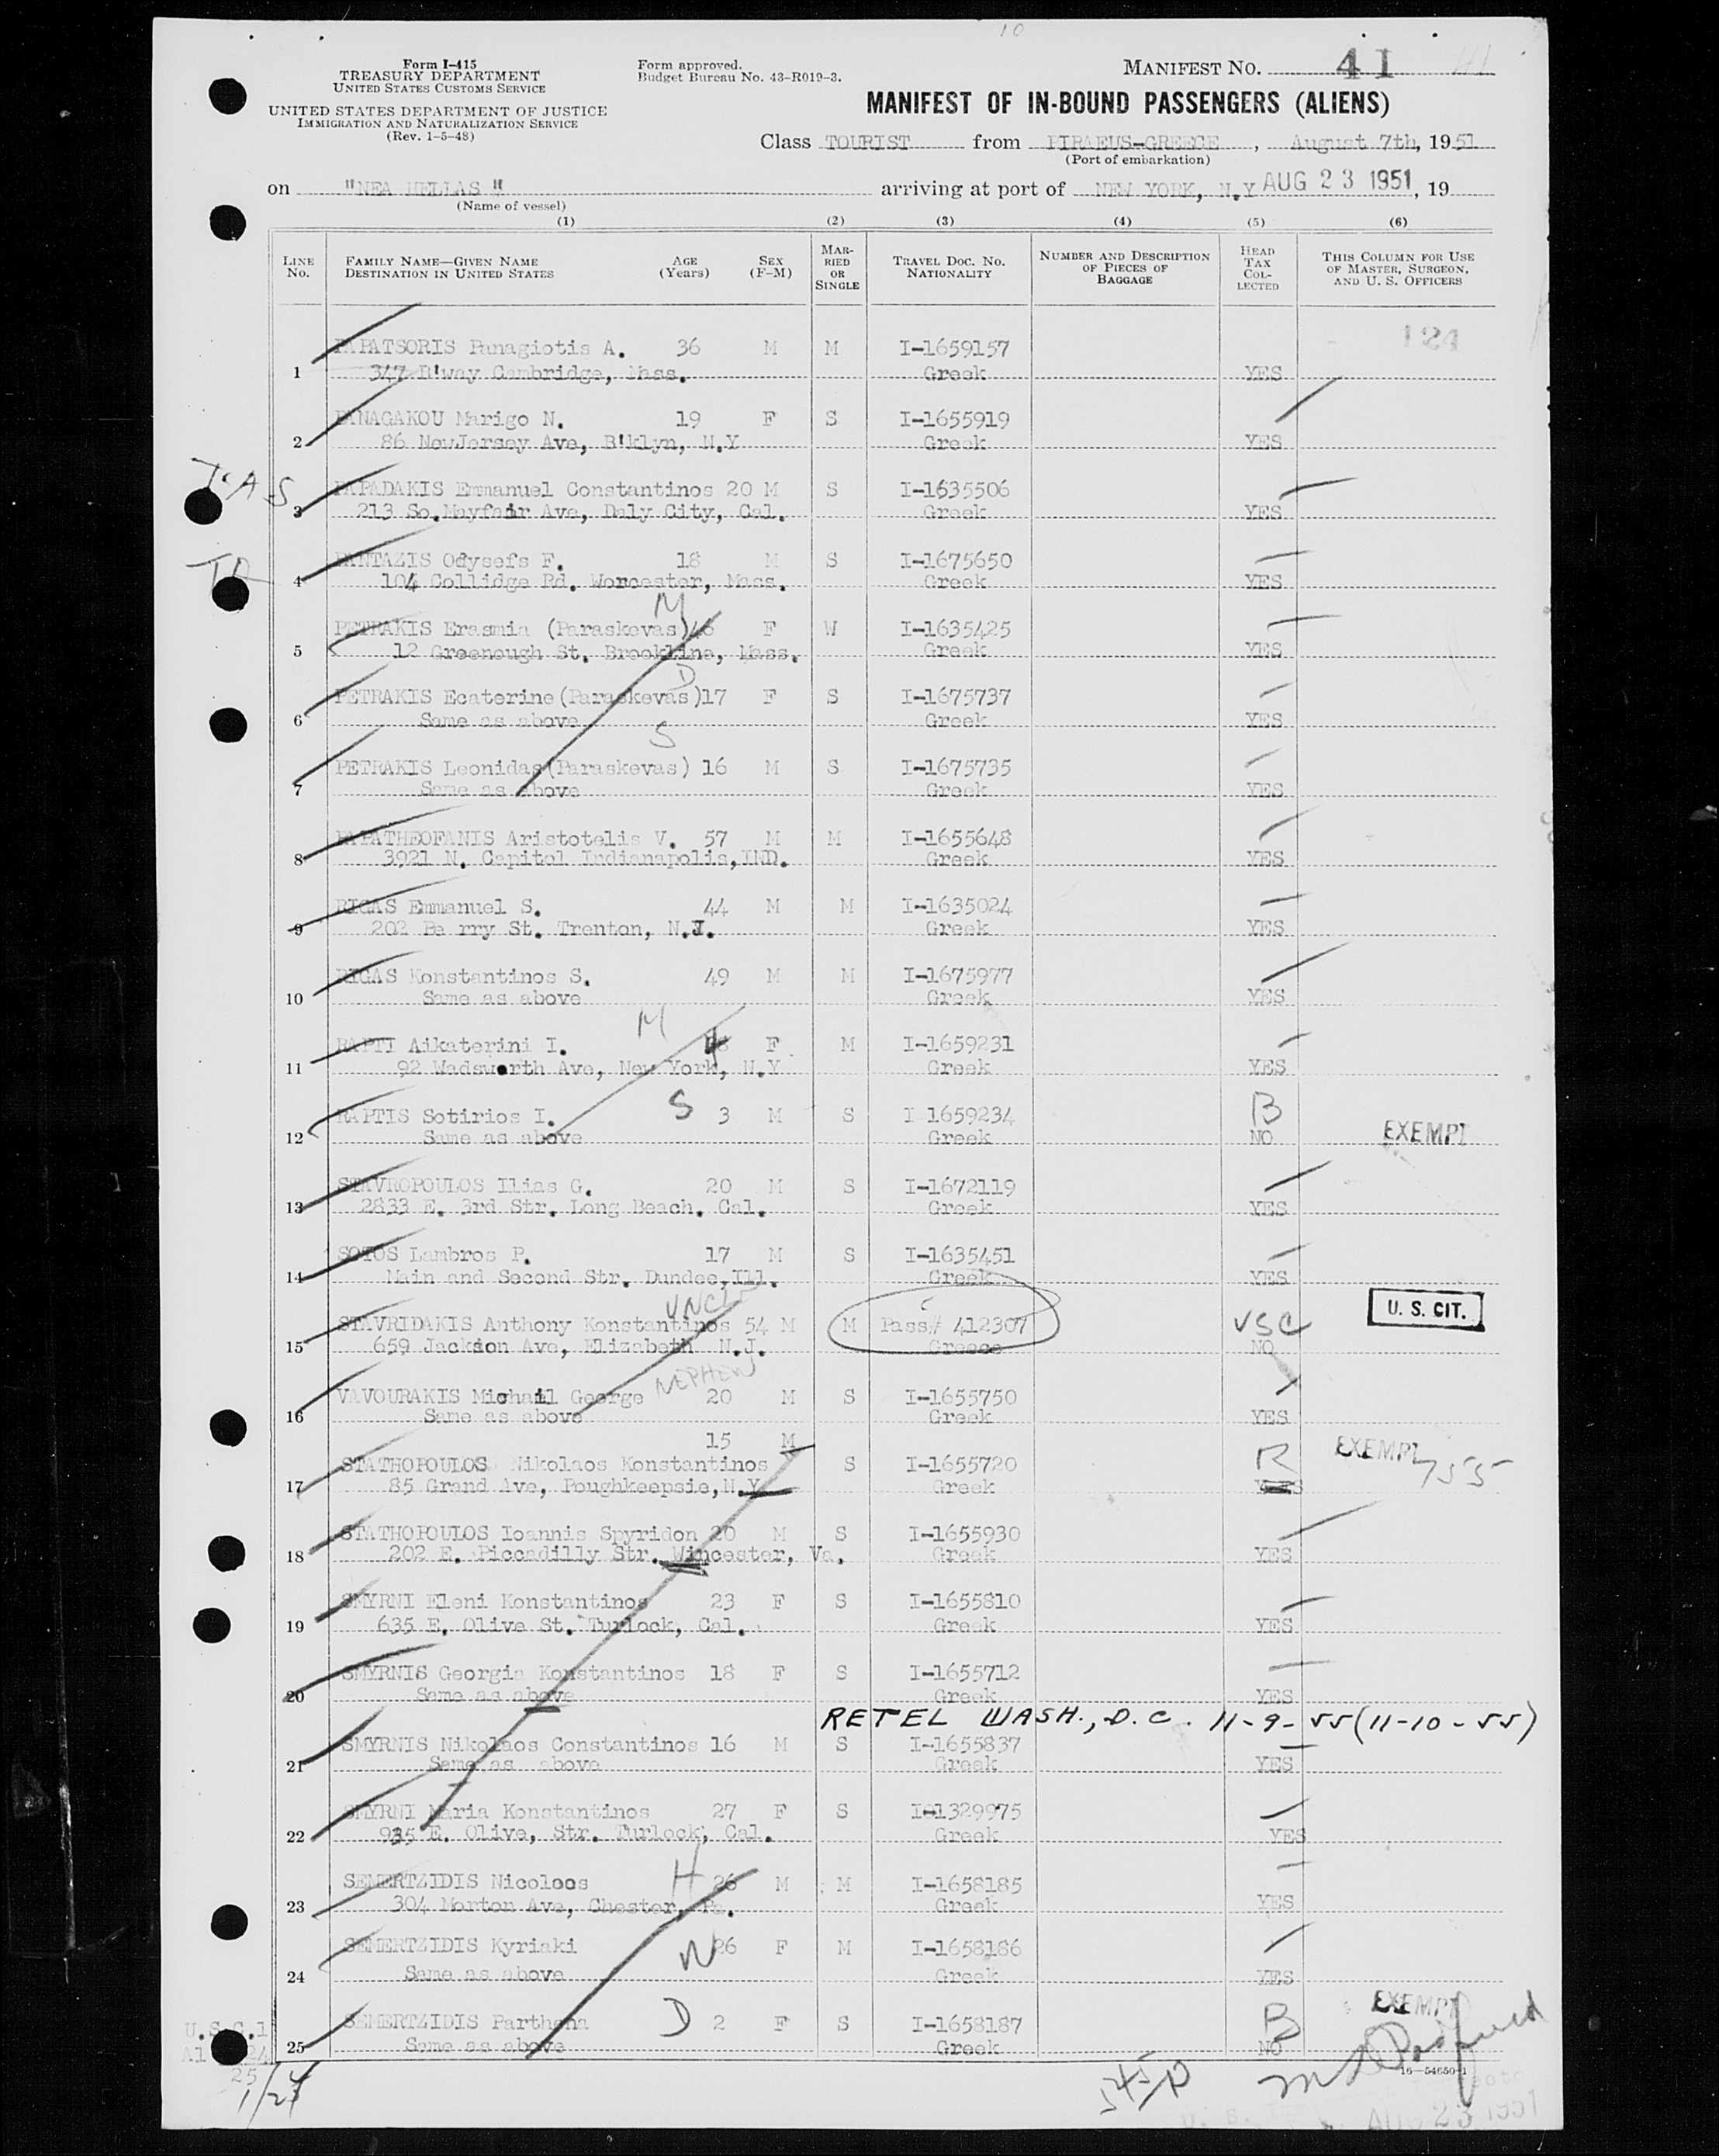 10
Form I-415
TREASURY DEPARTMENT
UNITED STATES CUSTOMS SERVICE
UNITED STATES DEPARTMENT OF JUSTICE
IMMIGRATION AND NATURALIZATION SERVICE
(Rev. 1-5-48)
Form approved.
Budget Bureau No. 43-R019-3.
MANIFEST NO. 41
MANIFEST OF IN-BOUND PASSENGERS (ALIENS)
Class TOURIST from PIRAEUS-GREECE, August 7th, 1951
(Port of embarkation)
on "NEA HELLAS" arriving at port of NEW YORK, N.Y AUG 23 1951, 19
(Name of vessel)
(1) (2) (3) (4) (5) (6)
LINE No. FAMILY NAME—GIVEN NAME DESTINATION IN UNITED STATES AGE (Years) SEX (F-M) MARRIED OR SINGLE TRAVEL DOC. NO. NATIONALITY NUMBER AND DESCRIPTION OF PIECES OF BAGGAGE HEAD TAX COLLECTED THIS COLUMN FOR USE OF MASTER, SURGEON, AND U. S. OFFICERS
124
PAPATSORIS Panagiotis A. 36 M M I-1659157
1 347 B'way Cambridge, Mass. Greek YES
PANAGAKOU Marigo N. 19 F S I-1655919
2 86 NewJersey Ave, B'klyn, N.Y Greek YES
PAPADAKIS Emmanuel Constantinos 20 M S I-1635506
3 213 So.Mayfair Ave, Daly City, Cal. Greek YES
PANTAZIS Odysefs F. 18 M S I-1675650
4 104 Collidge Rd. Worcester, Mass. Greek YES
M
PETRAKIS Erasmia (Paraskevas) F W I-1635425
5 12 Greenough St. Brookline, Mass. Greek YES
D
PETRAKIS Ecaterine(Paraskevas)17 F S I-1675737
6 Same as above Greek YES
S
PETRAKIS Leonidas(Paraskevas) 16 M S I-1675735
7 Same as above Greek YES
PAPATHEOFANIS Aristotelis V. 57 M M I-1655648
8 3921 N. Capitol Indianapolis,IND. Greek YES
RIGAS Emmanuel S. 44 M M I-1635024
9 202 Pe rry St. Trenton, N.J. Greek YES
RIGAS Konstantinos S. 49 M M I-1675977
10 Same as above Greek YES
M
RAPTI Aikaterini I. F M I-1659231
11 92 Wadsworth Ave, New York, N.Y Greek YES
RAPTIS Sotirios I. S 3 M S I 1659234 B
12 Same as above Greek NO EXEMPT
STAVROPOULOS Ilias G. 20 M S I-1672119
13 2833 E. 3rd Str. Long Beach. Cal. Greek YES
SOTOS Lambros P. 17 M S I-1635451
14 Main and Second Str. Dundee,Ill. Greek YES
UNCLE
STAVRIDAKIS Anthony Konstantinos 54 M M Pass# 412307 USC U. S. CIT.
15 659 Jackson Ave, Elizabeth N.J. Greece NO
NEPHEW
VAVOURAKIS Michail George 20 M S I-1655750
16 Same as above Greek YES
15 M
STATHOPOULOS Nikolaos Konstantinos S I-1655720 R EXEMPT 755
17 85 Grand Ave, Poughkeepsie,N.Y Greek YES
STATHOPOULOS Ioannis Spyridon 20 M S I-1655930
18 202 E. Piccadilly Str. Wincester, Va. Greek YES
SMYRNI Eleni Konstantinos 23 F S I-1655810
19 635 E. Olive St. Turlock, Cal. Greek YES
SMYRNIS Georgia Konstantinos 18 F S I-1655712
20 Same as above Greek YES
RETEL WASH., D.C. 11-9-55(11-10-55)
SMYRNIS Nikolaos Constantinos 16 M S I-1655837
21 Same as above Greek YES
SMYRNI Maria Konstantinos 27 F S I-1329975
22 935 E. Olive, Str. Turlock, Cal. Greek YES
SEMERTZIDIS Nicoloos H 26 M M I-1658185
23 304 Morton Ave, Chester, Pa. Greek YES
SEMERTZIDIS Kyriaki W 26 F M I-1658186
24 Same as above Greek YES
SEMERTZIDIS Parthena D 2 F S I-1658187 B EXEMPT
25 Same as above Greek NO
U.S.C.1
24
25
1/24
16—54650-1
AUG 23 1951